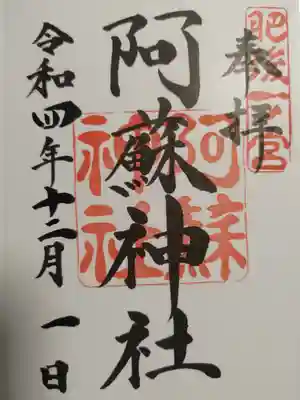 肥後一宮
奉拝
阿蘇神社
阿蘇神社
令和四年十二月一日